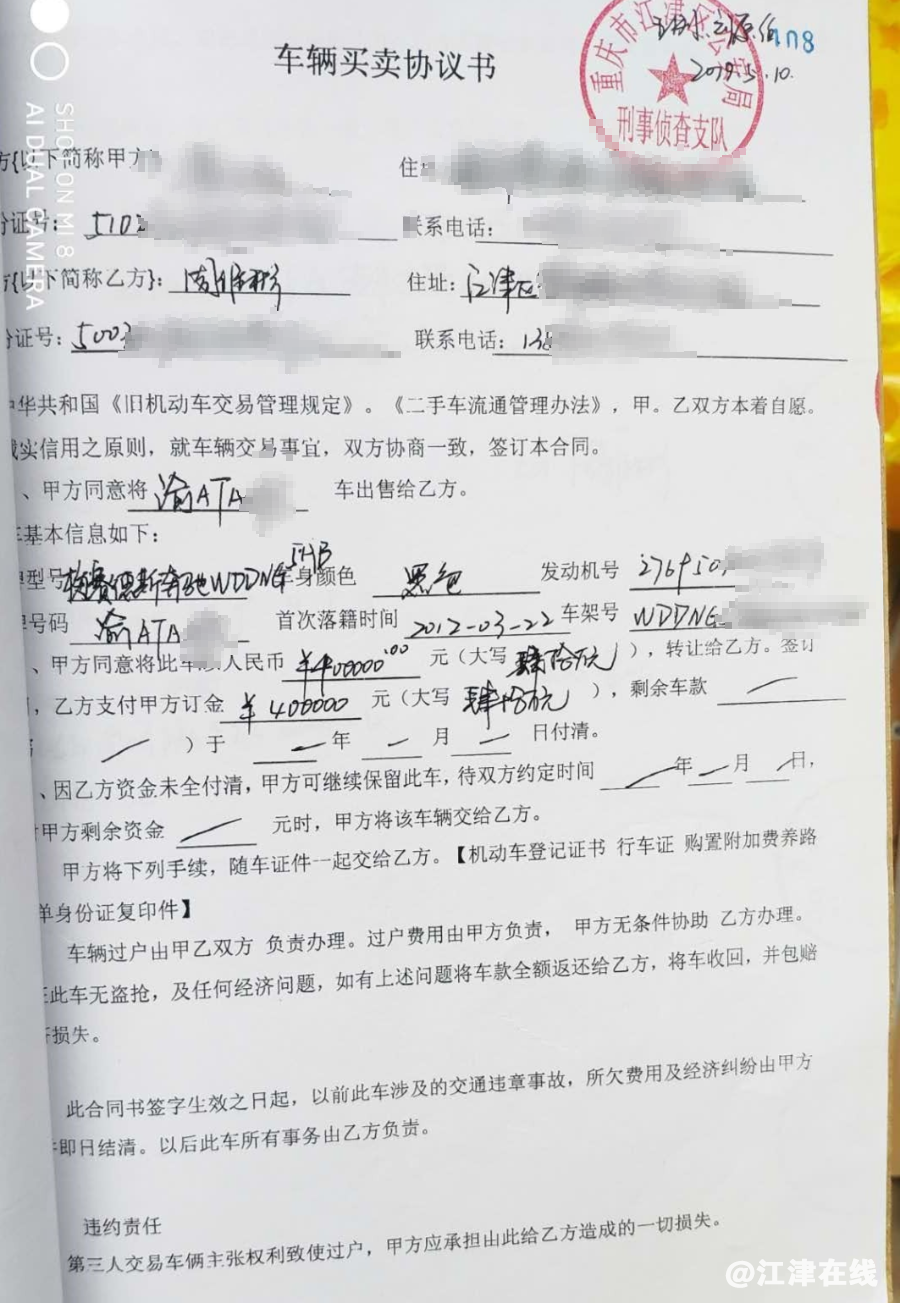 108
重庆市江津区公安局
刑事侦查支队
2019.5.10.
车辆买卖协议书
方{以下简称甲方 住
份证号：5102
联系电话：
方{以下简称乙方}： 住址：江津区
份证号：5003 联系电话：138
中华共和国《旧机动车交易管理规定》。《二手车流通管理办法》，甲。乙双方本着自愿。
诚实信用之原则，就车辆交易事宜，双方协商一致，签订本合同。
、甲方同意将 渝ATA 车出售给乙方。
车基本信息如下：
牌型号 梅赛德斯奔驰WDDNG 5HB 车身颜色 黑色 发动机号 276950
牌号码 渝ATA 首次落籍时间 2012-03-22 车架号 WDDNG
、甲方同意将此车 人民币 ¥400000.00 元（大写 肆拾万元 ），转让给乙方。签订
，乙方支付甲方订金 ¥400000 元（大写 肆拾万元 ），剩余车款
）于 年 月 日付清。
、因乙方资金未全付清，甲方可继续保留此车，待双方约定时间 年 月 日，
付甲方剩余资金 元时，甲方将该车辆交给乙方。
甲方将下列手续，随车证件一起交给乙方。【机动车登记证书 行车证 购置附加费养路
单身份证复印件】
车辆过户由甲乙双方 负责办理。过户费用由甲方负责， 甲方无条件协助 乙方办理。
证此车无盗抢，及任何经济问题，如有上述问题将车款全额返还给乙方，将车收回，并包赔
济损失。
此合同书签字生效之日起，以前此车涉及的交通违章事故，所欠费用及经济纠纷由甲方
即日结清。以后此车所有事务由乙方负责。
违约责任
第三人交易车俩主张权利致使过户，甲方应承担由此给乙方造成的一切损失。
SHOT ON MI 8
AI DUAL CAMERA
@江津在线